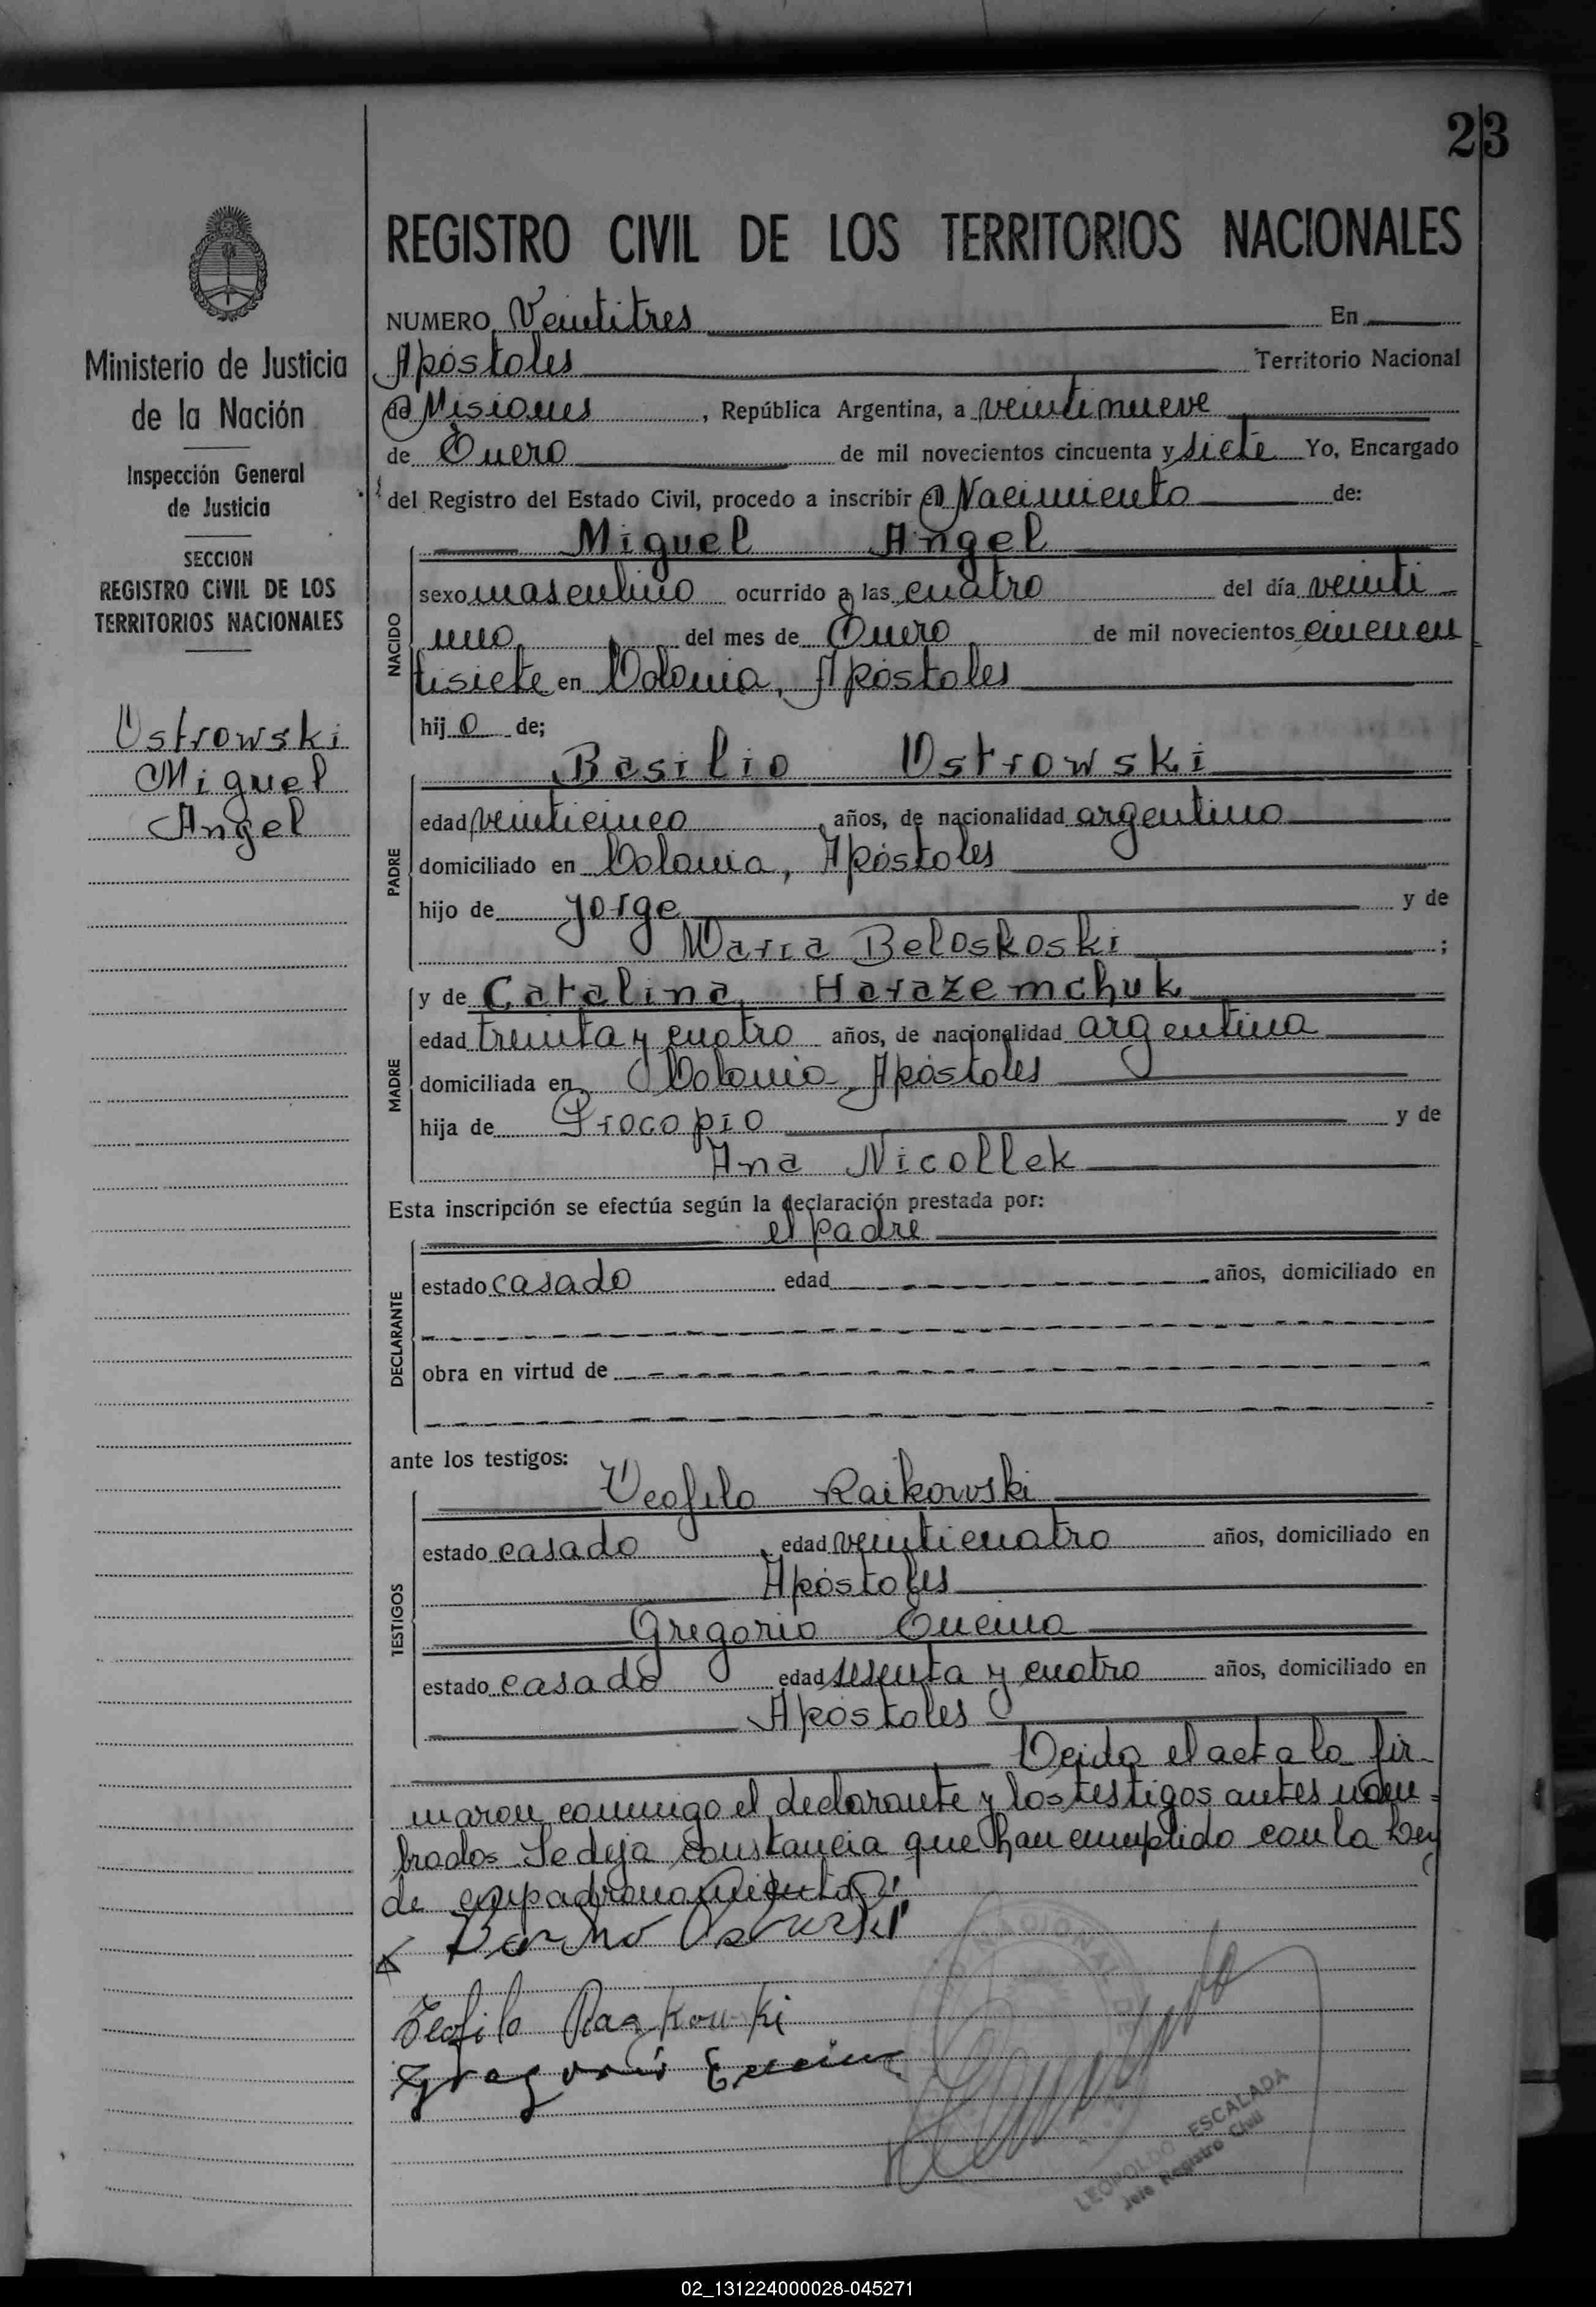 23
REGISTRO CIVIL DE LOS TERRITORIOS NACIONALES
Ministerio de Justicia
de la Nación
Inspección General
de Justicia
SECCION
REGISTRO CIVIL DE LOS
TERRITORIOS NACIONALES
Ostrowski
Miguel
Angel
NUMERO Veintitres En
Apóstoles Territorio Nacional
de Misiones, República Argentina, a veintinueve
de Enero de mil novecientos cincuenta y siete Yo, Encargado
del Registro del Estado Civil, procedo a inscribir el Nacimiento de:
NACIDO
Miguel Angel
sexo masculino ocurrido a las cuatro del día veinti
uno del mes de Enero de mil novecientos cincuen
tisiete en Colonia, Apóstoles
hijo de;
PADRE
Basilio Ostrowski
edad veinticinco años, de nacionalidad argentino
domiciliado en Colonia, Apóstoles
hijo de Jorge y de
Maria Beloskoski ;
MADRE
y de Catalina Harazemchuk
edad treinta y cuatro años, de nacionalidad argentina
domiciliada en Colonia, Apóstoles
hija de Procopio y de
Ana Nicollek
Esta inscripción se efectúa según la declaración prestada por:
DECLARANTE
el padre
estado casado edad años, domiciliado en
obra en virtud de
ante los testigos:
TESTIGOS
Teofilo Raikowski
estado casado, edad veinticuatro años, domiciliado en
Apóstoles
Gregorio Encina
estado casado edad sesenta y cuatro años, domiciliado en
Apóstoles
Leida el acta la fir-
maron conmigo el declarante y los testigos antes nom=
brados. Se deja constancia que han cumplido con la Ley
de empadronamiento
Teofilo Raikouski
Gregorio Encina
LEOPOLDO ESCALADA
Jefe Registro Civil
02_131224000028-045271